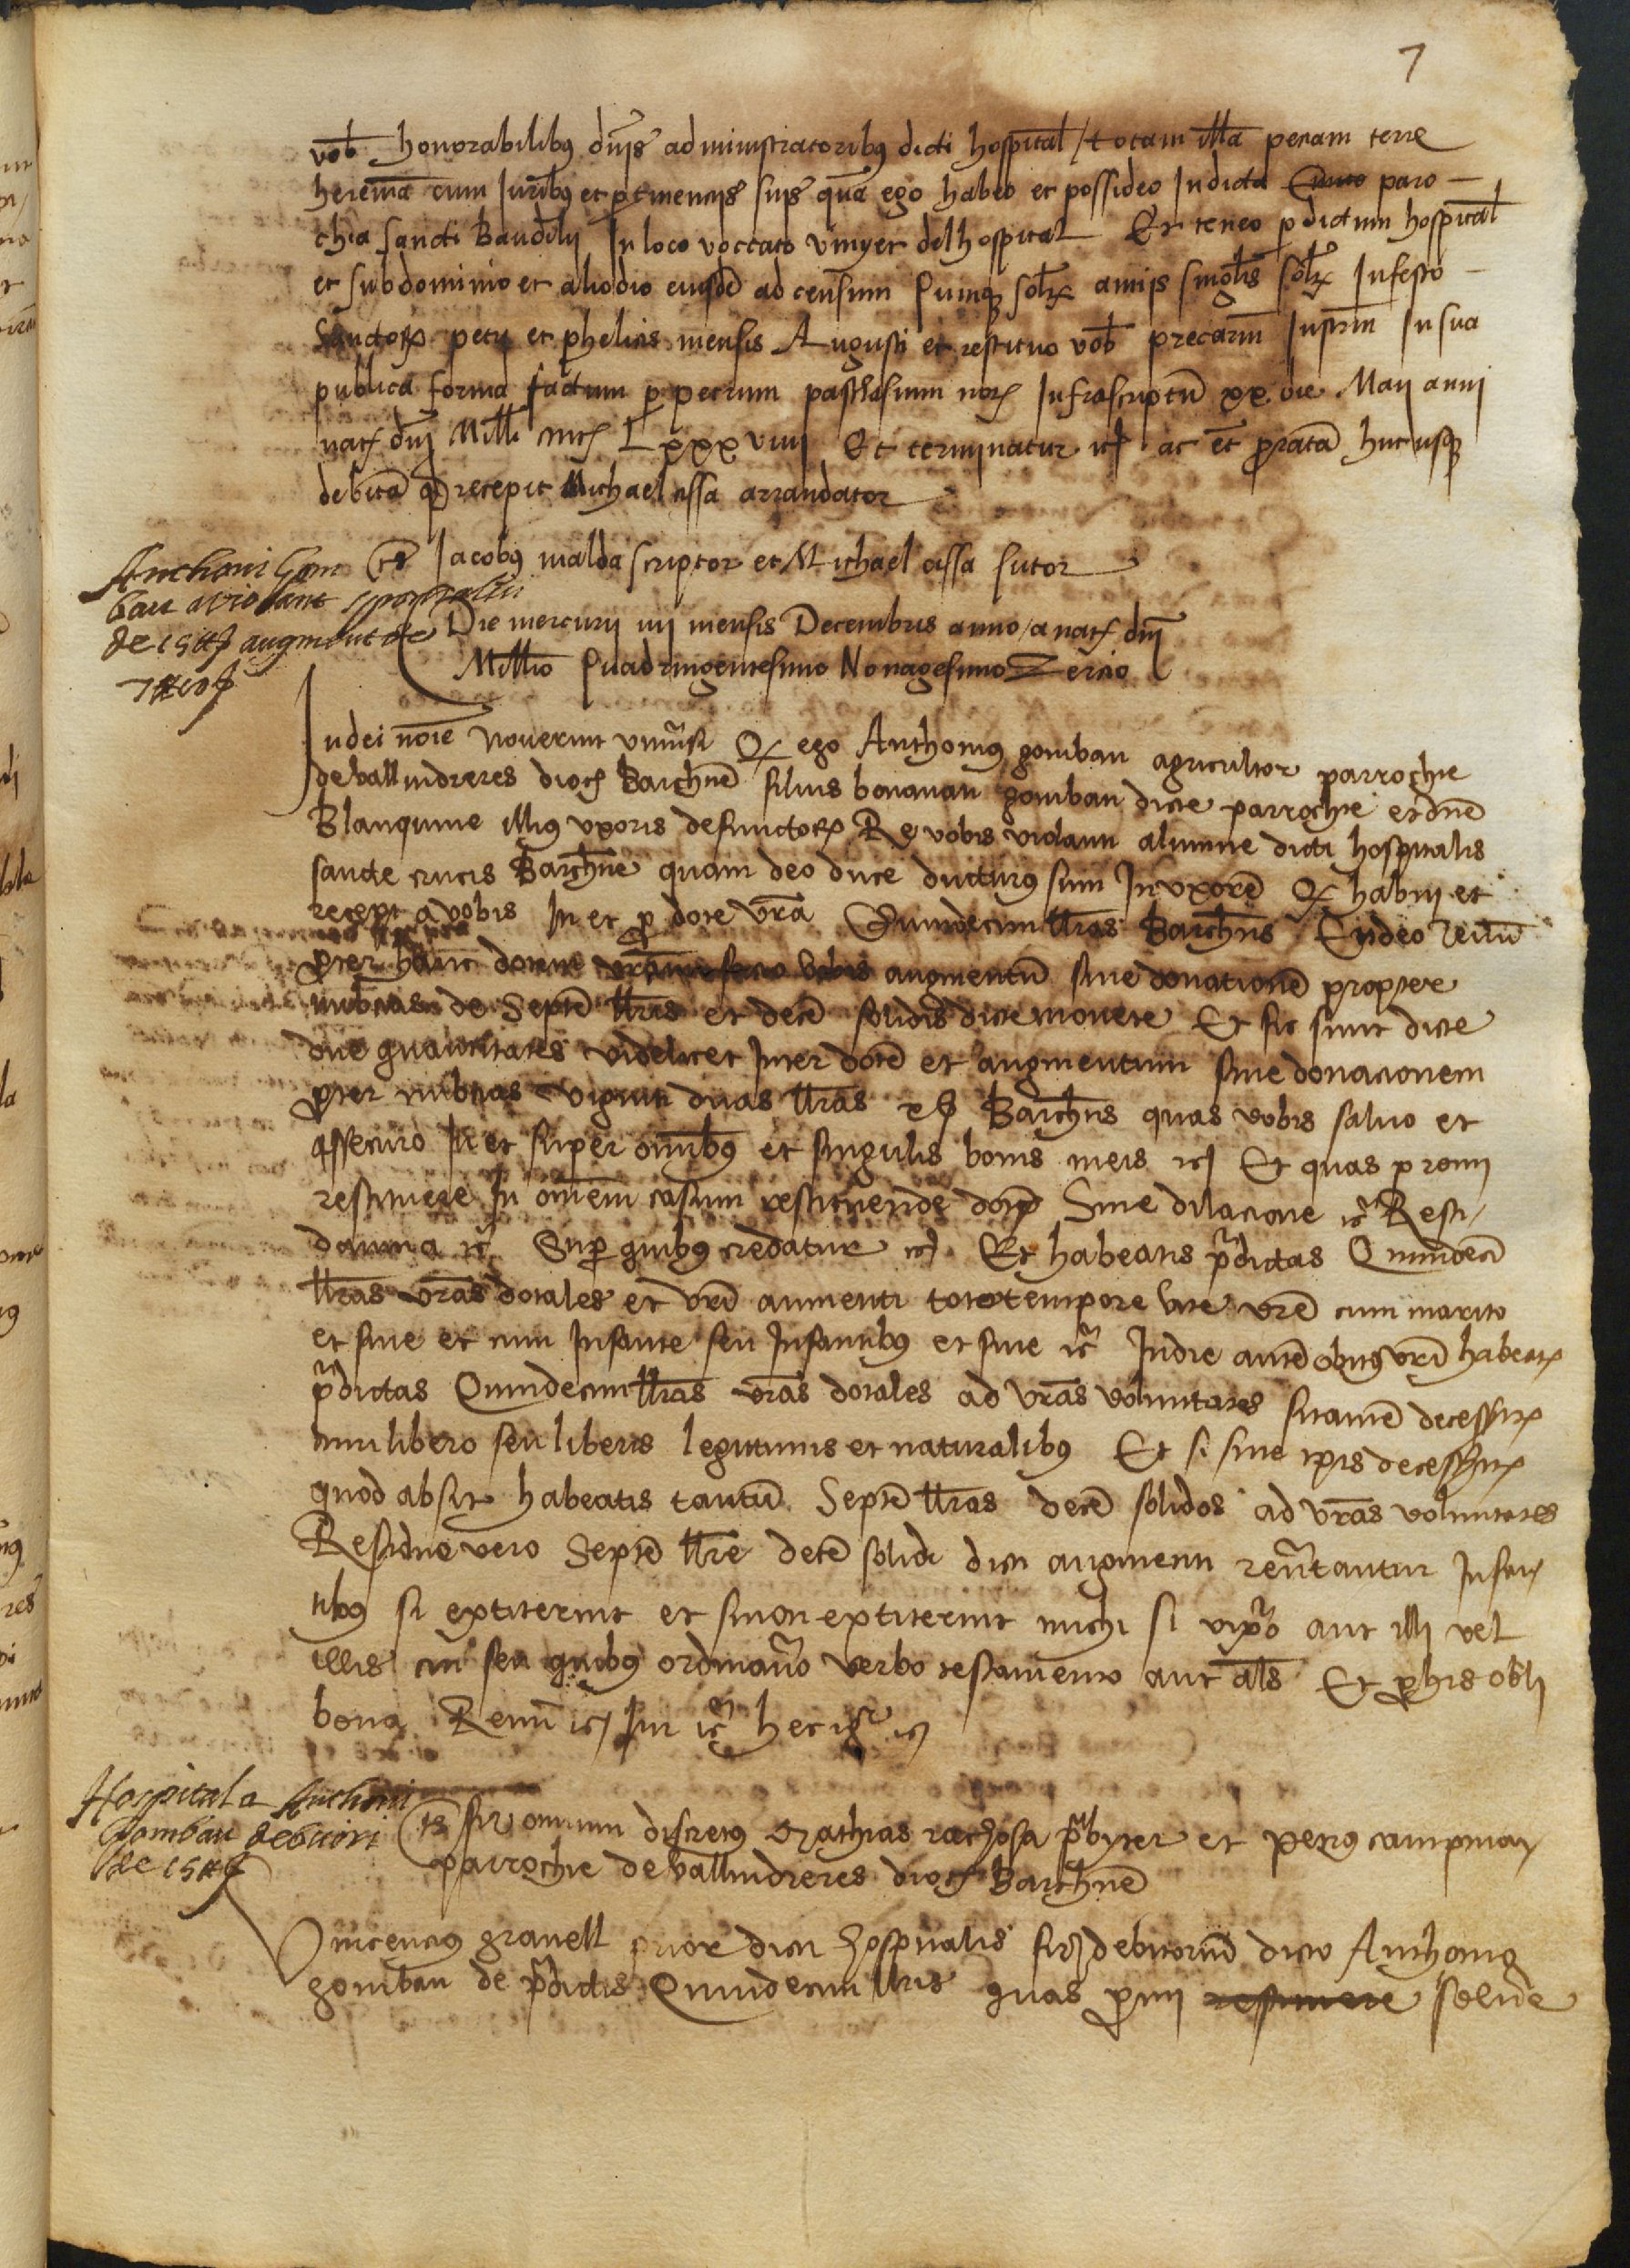 7
vob honorabilibus dnis administratoribus dicti hospital / totam illa peciam terre
herema cum Iuribus et ptinencijs suis qua ego habeo et possideo In dicta paro-
chia sancti Baudilij In loco voccato vinyet del hospital Et teneo p dictum hospital
et sub dominio et alodio eiusde ad censum quinque solid annis singulis solid In festo
Sanctorum petri et phelicis mensis Augusti et restituo vob precarin Instrm In sua
publica forma factum p petrum paschasium not Infrascriptu xx die Maij anni
nat dni Mill cccc Lxxx viiij Et terminatur etc ac et prata huc usque
debita q recepit Michael assa arrandator
Ts Iacobus malda scriptor et Michael assa sutor
Anthoni Gom
bau a violant sponsalici
de 15 ℔ augment de
7 ℔ 10 ß
Die mercurij iiij mensis Decembris anno / a nat dni
Millio Quadringentesimo Nonagesimo Tercio
In dei noie Noverint universi Q ego Anthonius gombau agricultor parrochie
de vallvidreres dioc Barchne filius bonanati gombau dicte parrochie et dne
Blanquine illius uxoris defunctorum Re vobis violanti alumne dicti hospitalis
sancte crucis Barchne quam deo duce ducturus sum In uxore Q habui et
recepi a vobis In et p dote vra Quindecim llras Barchns Eydeo Renu
pter hanc dotem vram facio vobis augmentu sive donatione propter
nubcias de Septe llris et dece solidis dicte monete Et sic sunt dicte
due quantitates videlicet Inter dote et augmentum sive donacionem
pter nubcias viginti duas llras x ß Barchns quas vobis salvo et
assecuro In et super omibus et singulis bonis meis etc Et quas promi
restituere In omem casum restituende dotis Sine dilacione etc Resti
damna etc Sup quibus credatur etc Et habeatis pdictas Quindeci
llras vras dotales et vri aumenti toto tempore vite vre cum marito
et sine et cum Infante seu Infantibus et sine etc In die aute obitus vri habeatis
pdictas Quindecim llras vras dotales ad vras voluntates si tame decesseritis
cum libero seu liberis legitimis et naturalibus Et si sine ipis decesseritis
quod absit habeatis tantu Septe llras dece solidos ad vras voluntates
Residue vero Septe llre dece solidi dicti augmenti revertantur Infan
tibus si extiterint et si non extiterint michi si vixero aut illi vel
illis cui seu quibus ordinavero verbo testamento aut als Et p his obli
bona Renu etc Iur etc hec igr etc
Hospital a Anthoni
Gombau debitori
de 15 ℔
Ts sunt omnium discretus Mathias rachosa pbiter et petrus campmar
parrochie de vallvidreres dioc Barchne
Vincencius gravell prior dicti hospitalis firm debitoriu dicto Anthonio
gombau de pdictis Quindecim llris quas pmi restituere solvere